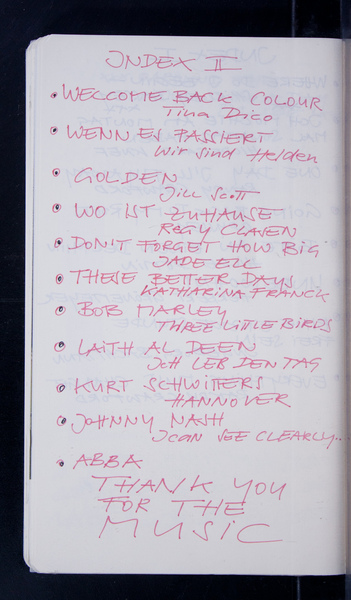 INDEX II
• WELCOME BACK COLOUR
Tina Dico
• WENN ES PASSIERT
Wir sind Helden
• GOLDEN
Jill Scott
• WO IST ZUHAUSE
REGY CLASEN
• DON'T FORGET HOW BIG
JADE ELL
• THESE BETTER DAYS
KATHARINA FRANCK
• BOB MARLEY
THREE LITTLE BIRDS
• LAITH AL DEEN
ICH LEB DEN TAG
• KURT SCHWITTERS
HANNOVER
• JOHNNY NASH
I CAN SEE CLEARLY...
• ABBA
THANK YOU
FOR THE
MUSIC